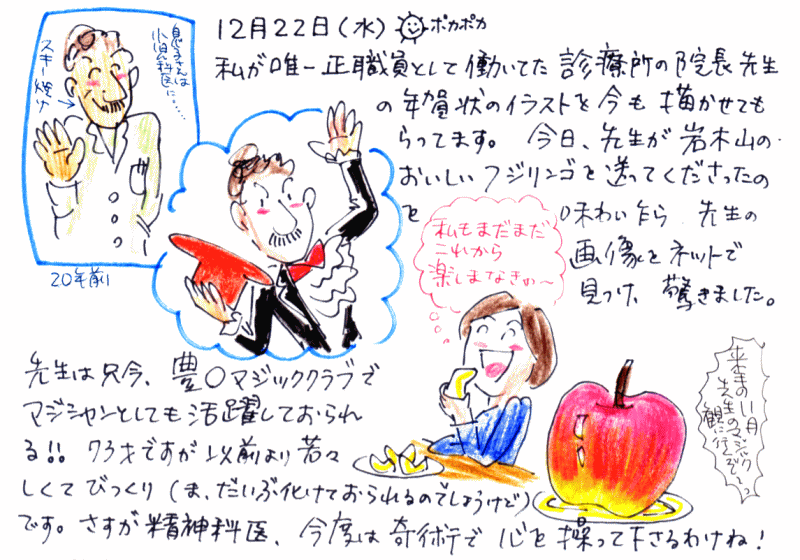 12月22日(水) ポカポカ
私が唯一正職員として働いてた 診療所の院長先生
の年賀状のイラストを今も描かせても
らってます。 今日、先生が岩木山の
おいしいフジリンゴを送ってくださったの
を 味わい乍ら 先生の
画像をネットで
見つけ、驚きました。
息子さんは
小児科医に……
スキー焼け
20年前
私もまだまだ
これから
楽しまなきゃ〜
先生は只今、豊〇マジッククラブで
マジシャンとしても活躍しておられ
る!! 73才ですが以前より若々
しくてびっくり(ま、だいぶ化けておられるのでしょうけど)
です。さすが精神科医、今度は奇術で 心を操って下さるわけね!
先生のマジック